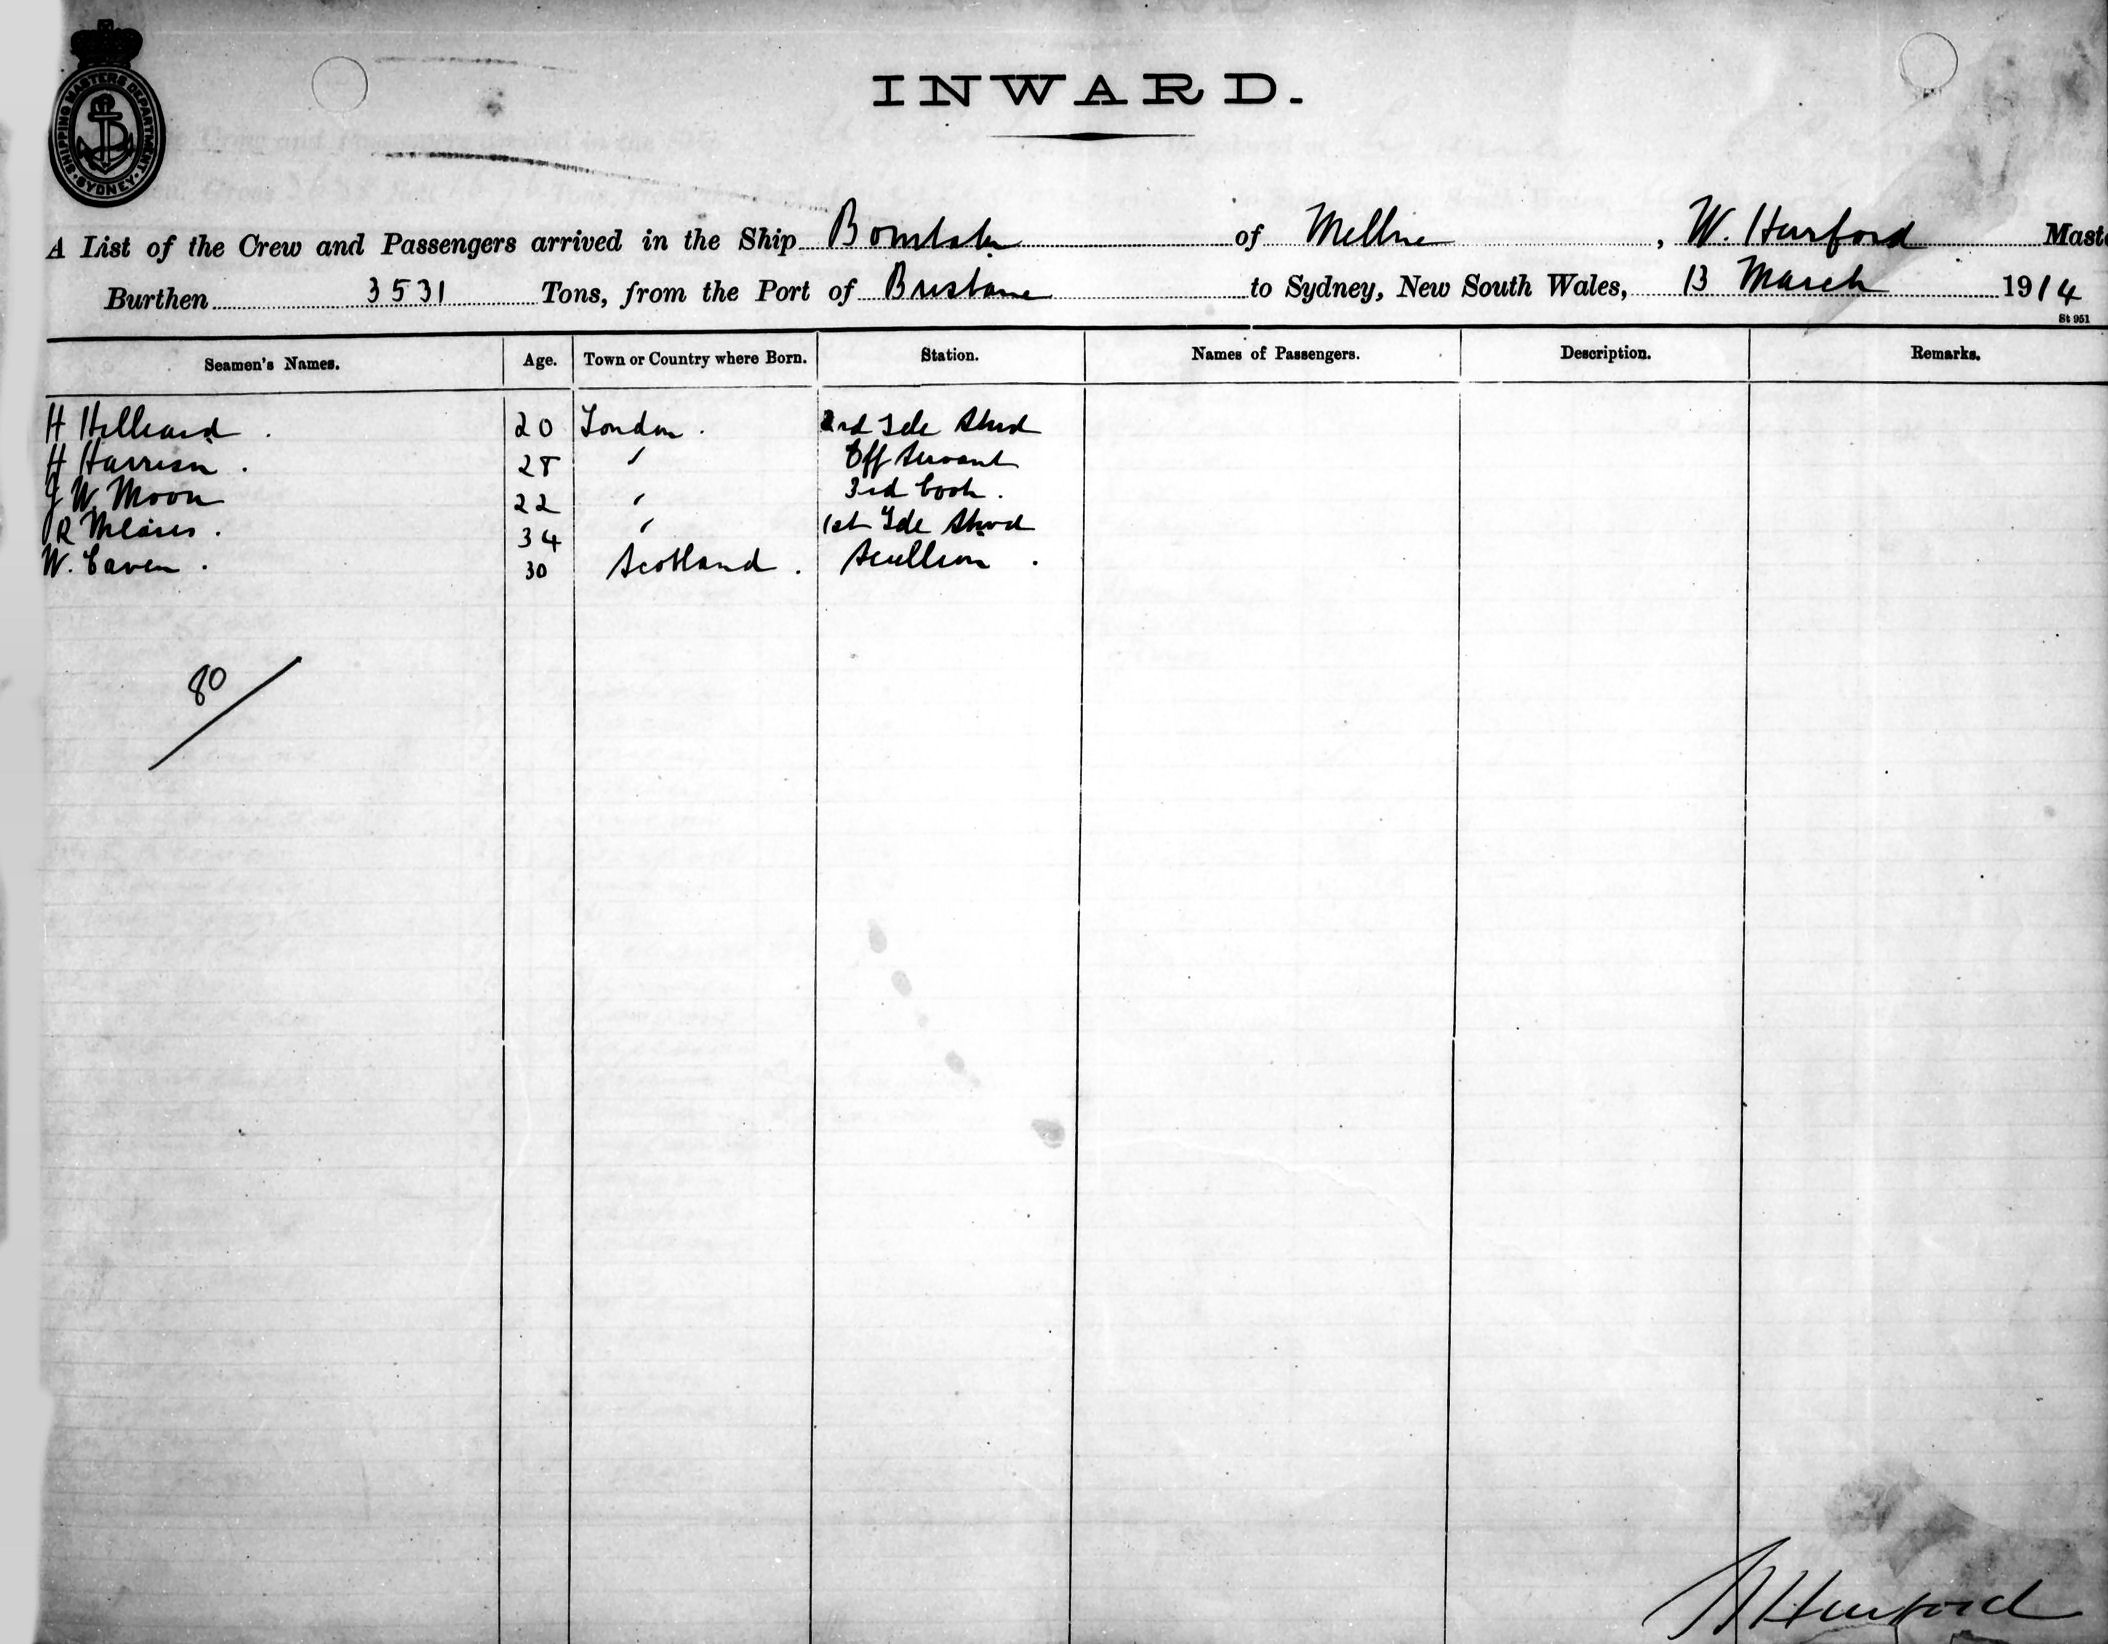 SHIPPING MASTERS DEPARTMENT
SYDNEY
INWARD.
A List of the Crew and Passengers arrived in the Ship Bombala of Melbne, W. Hurford Maste
Burthen 3531 Tons, from the Port of Brisbane to Sydney, New South Wales, 13 March 1914
St 951
Seamen's Names. Age. Town or Country where Born. Station. Names of Passengers. Description. Remarks.
H Hilliard . 20 London . 2nd Sde Stwd
H Harrison . 28 " Off Servant
J W. Moon 22 " 3rd Cook .
R Meares . 34 " 1st Sde Stwd
W. Caven . 30 Scotland . Scullion .
80
W Hurford